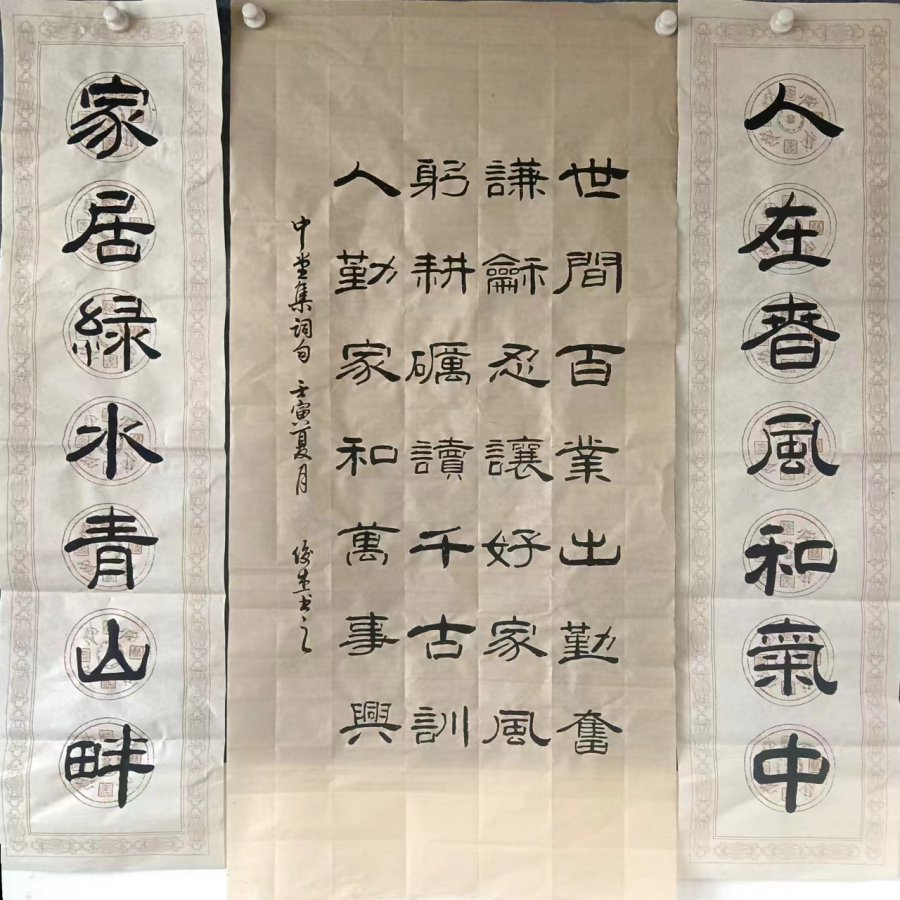 人在春風和氣中
世間百業出勤奮
謙龢忍讓好家風
躬耕礪讀千古訓
人勤家和萬事興
中堂集词句 壬寅夏月 书之
家居緑水青山畔